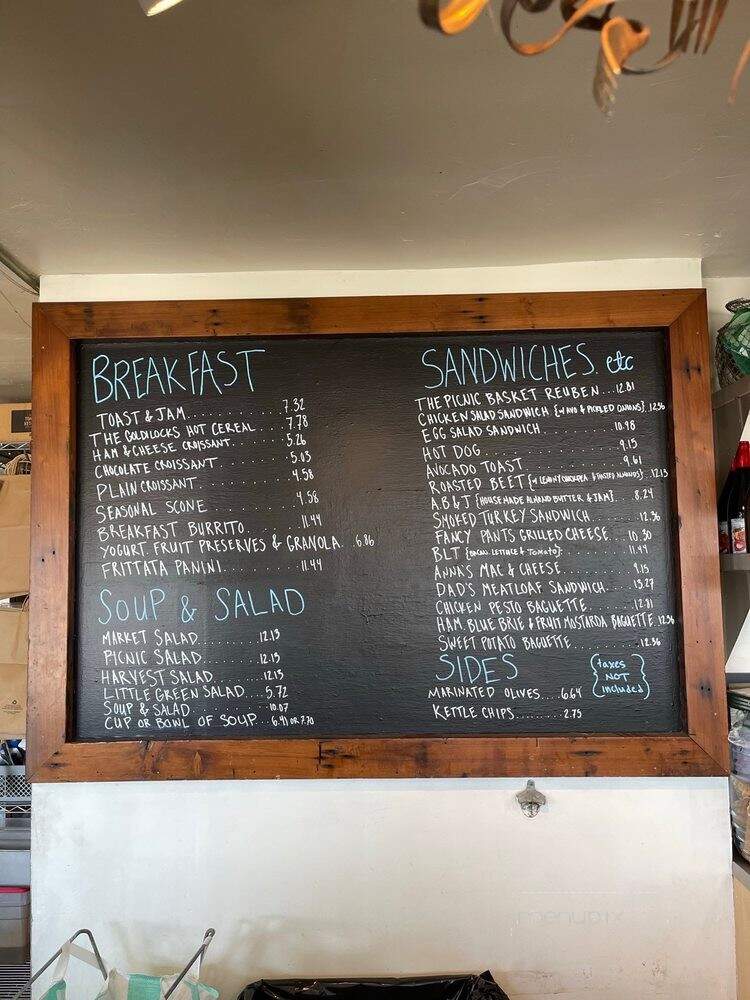 BREAKFAST
TOAST & JAM.............7.32
THE GOLDILOCKS HOT CEREAL.....7.78
HAM & CHEESE CROISSANT.......5.26
CHOCOLATE CROISSANT.........5.03
PLAIN CROISSANT...........4.58
SEASONAL SCONE...........4.58
BREAKFAST BURRITO........11.44
YOGURT, FRUIT PRESERVES & GRANOLA...6.86
FRITTATA PANINI..........11.44
SOUP & SALAD
MARKET SALAD........12.13
PICNIC SALAD........12.13
HARVEST SALAD.......12.13
LITTLE GREEN SALAD...5.72
SOUP & SALAD........10.07
CUP OR BOWL OF SOUP..6.41 OR 7.70
SANDWICHES etc
THE PICNIC BASKET REUBEN...12.81
CHICKEN SALAD SANDWICH {W/ AVO & PICKLED ONIONS}.12.36
EGG SALAD SANDWICH........10.98
HOT DOG...............9.15
AVOCADO TOAST...........9.61
ROASTED BEET {W/ LEMONY CHICKPEA & TOASTED ALMONDS}..12.13
A.B & J {HOUSEMADE ALMOND BUTTER & JAM}....8.24
SMOKED TURKEY SANDWICH.....12.36
FANCY PANTS GRILLED CHEESE..10.30
BLT {BACON, LETTUCE & TOMATO}........11.44
ANNA'S MAC & CHEESE........9.15
DAD'S MEATLOAF SANDWICH....13.27
CHICKEN PESTO BAGUETTE.....12.81
HAM, BLUE BRIE & FRUIT MOSTARDA BAGUETTE.12.36
SWEET POTATO BAGUETTE........12.36
SIDES
MARINATED OLIVES....6.64
KETTLE CHIPS.........2.75
{taxes
NOT
included}
menupix